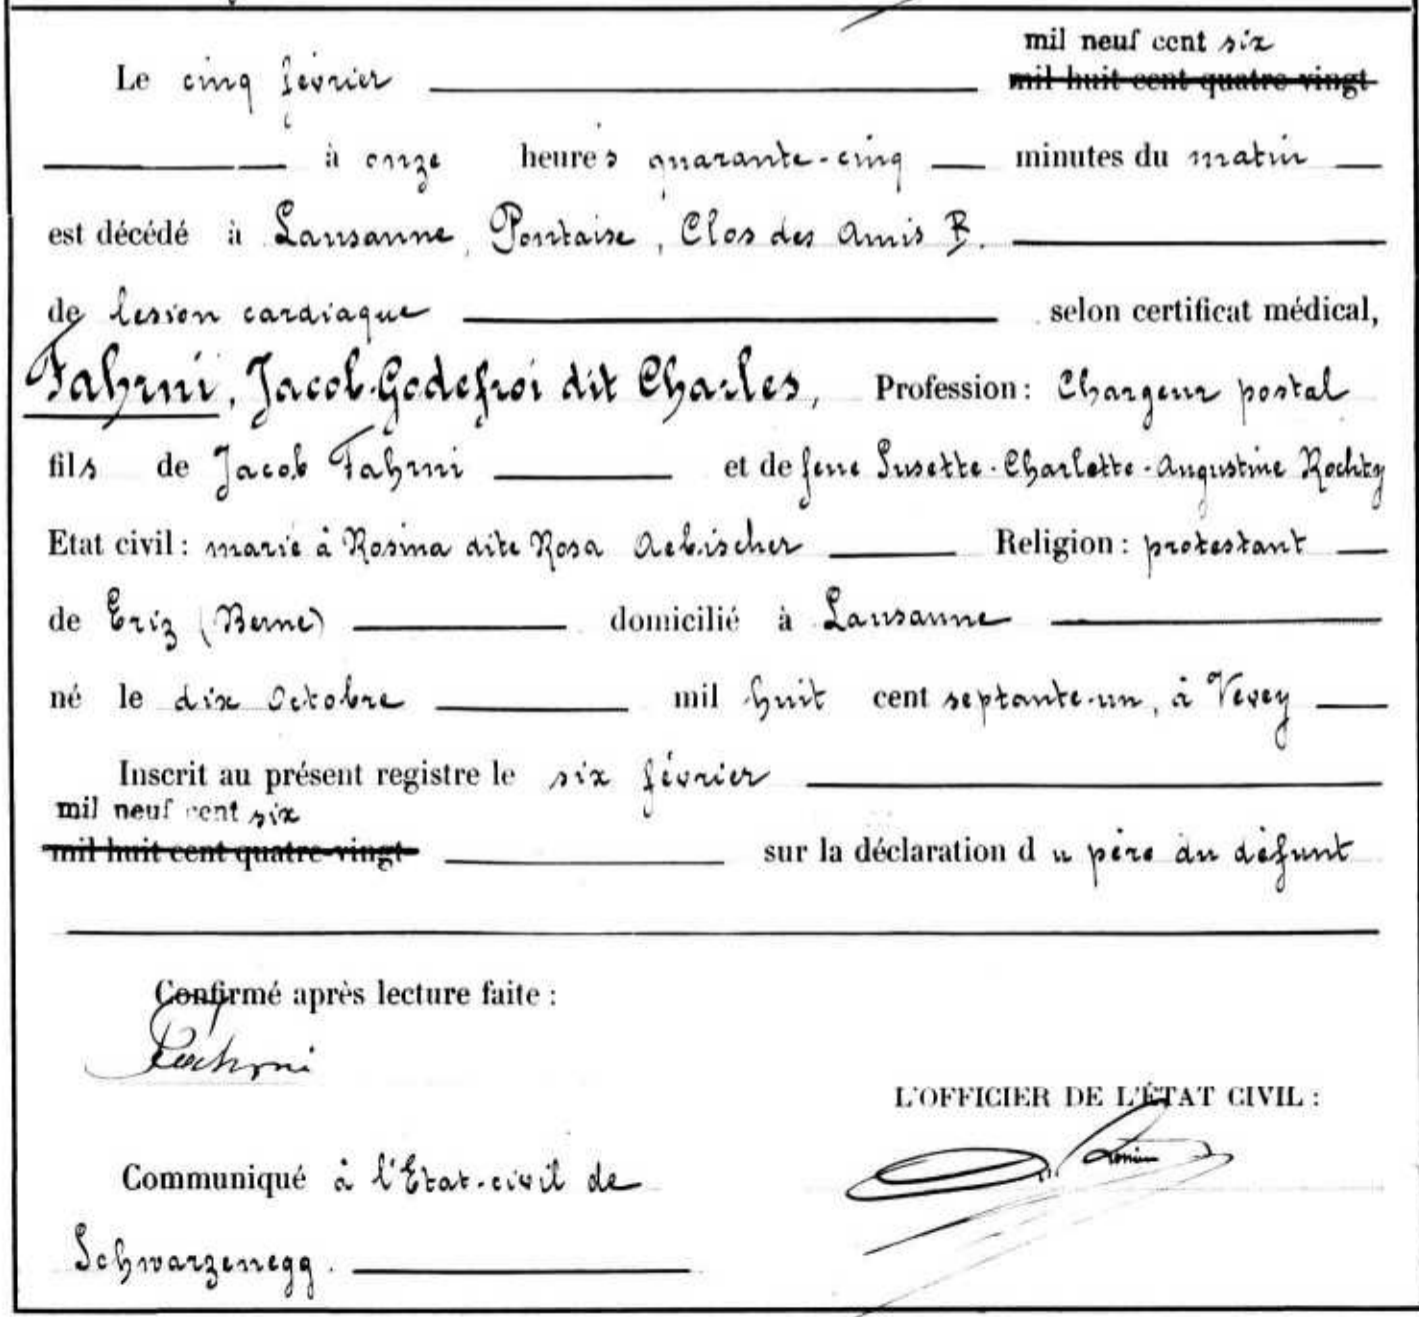 mil neuf cent six
Le cinq février mil huit cent quatre-vingt
à onze heures quarante-cinq minutes du matin
est décédé à Lausanne, Pontaise, Clos des Amis B.
de lesion cardiaque selon certificat médical,
Fahrni, Jacob-Godefroi dit Charles, Profession: Chargeur postal
fils de Jacob Fahrni et de feue Susette-Charlotte-Augustine Rochty
Etat civil: marié à Rosina dite Rosa Aebischer Religion: protestant
de Eriz (Berne) domicilié à Lausanne
né le dix Octobre mil huit cent septante-un, à Vevey
Inscrit au présent registre le six février
mil neuf cent six
mil huit cent quatre-vingt sur la déclaration du père du défunt
Confirmé après lecture faite:
Fahrni
L'OFFICIER DE L'ÉTAT CIVIL:
Communiqué à l'Etat-civil de
Schwarzenegg.